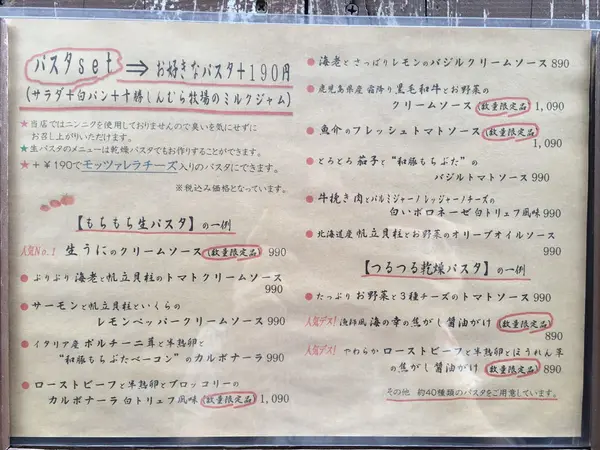 パスタset ⇒ お好きなパスタ+190円
(サラダ+白パン+十勝しんむら牧場のミルクジャム)
★当店ではニンニクを使用しておりませんので臭いを気にせずに
お召し上がりいただけます。
★生パスタのメニューは乾燥パスタでもお作りすることができます。
★+¥190でモッツァレラチーズ入りのパスタにできます。
※税込み価格となっています。
【もちもち生パスタ】の一例
人気No.1 生うにのクリームソース(数量限定品) 990
●ぷりぷり海老と帆立貝柱のトマトクリームソース
990
●サーモンと帆立貝柱といくらの
レモンペッパークリームソース 990
●イタリア産ポルチーニ茸と半熟卵と
"和豚もちぶたベーコン"のカルボナーラ 990
●ローストビーフと半熟卵とブロッコリーの
カルボナーラ白トリュフ風味(数量限定品)1,090
●海老とさっぱりレモンのバジルクリームソース 890
●鹿児島県産霜降り黒毛和牛とお野菜の
クリームソース(数量限定品)1,090
●魚介のフレッシュトマトソース(数量限定品)
1,090
●とろとろ茄子と"和豚もちぶた"の
バジルトマトソース 990
●牛挽き肉とパルミジャーノレッジャーノチーズの
白いボロネーゼ白トリュフ風味 990
●北海道産帆立貝柱とお野菜のオリーブオイルソース
990
【つるつる乾燥パスタ】の一例
●たっぷりお野菜と3種チーズのトマトソース 990
人気デス!漁師風海の幸の焦がし醤油がけ(数量限定品)
890
人気デス!やわらかローストビーフと半熟卵とほうれん草
の焦がし醤油がけ(数量限定品)890
その他 約40種類のパスタをご用意しています。